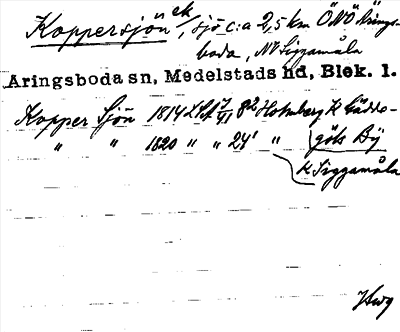 Koppersjön ek, sjö c:a 2,5 km ÖNÖ Årings-
boda, NV Siggamåla
Aringsboda sn, Medelstads hd, Blek. l.
Kopper Sjön 1814 LSA 7/41 82 Holmberg K Gädde-
" " 1820 " " 241 " göls By
K Siggamåla